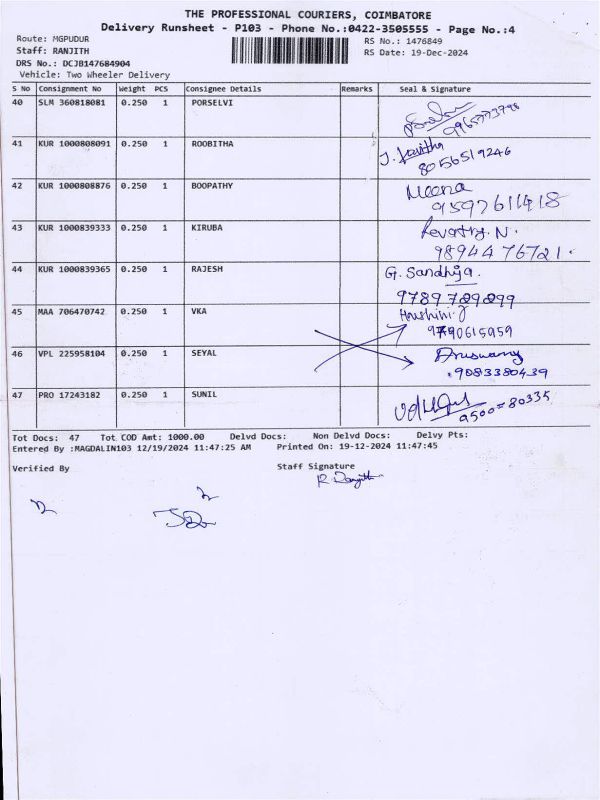 THE PROFESSIONAL COURIERS, COIMBATORE
Delivery Runsheet - P103 - Phone No.:0422-3505555 - Page No.:4
Route: MGPUDUR
RS No.: 1476849
Staff: RANJITH
RS Date: 19-Dec-2024
DRS No.: DCJB147684904
Vehicle: Two Wheeler Delivery
S No Consignment No Weight PCS Consignee Details Remarks Seal & Signature
40 SLM 360818081 0.250 1 PORSELVI
9965773798
41 KUR 1000808091 0.250 1 ROOBITHA J. Kavitha
8056519246
42 KUR 1000808876 0.250 1 BOOPATHY Meena
9597611418
43 KUR 1000839333 0.250 1 KIRUBA Revathy. N.
9894476721.
44 KUR 1000839365 0.250 1 RAJESH G. Sandhya.
9789789899
45 MAA 706470742 0.250 1 VKA Harshini. J
9790615959
46 VPL 225958104 0.250 1 SEYAL
9083380439
47 PRO 17243182 0.250 1 SUNIL
80335
Tot Docs: 47 Tot COD Amt: 1000.00 Delvd Docs: Non Delvd Docs: Delvy Pts:
Entered By :MAGDALIN103 12/19/2024 11:47:25 AM Printed On: 19-12-2024 11:47:45
Verified By
Staff Signature
R. Ranjith